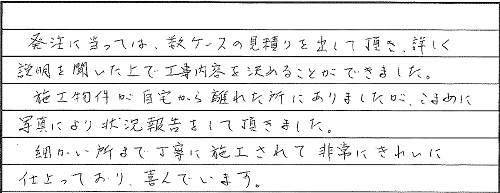 発注に当っては、数ケースの見積りを出して頂き、詳しく
説明を聞いた上で工事内容を決めることができました。
施工物件が自宅から離れた所にありましたが、こまめに
写真により状況報告をして頂きました。
細かい所まで丁寧に施工されて非常にきれいに
仕上っており、喜んでいます。